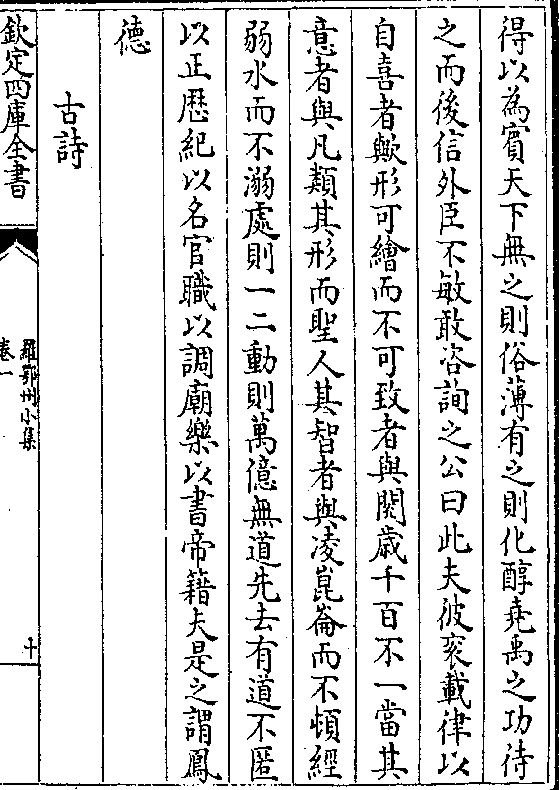 得以為賔天下無之則俗薄有之則化醇堯禹之功待
之而後信外臣不敏敢咨詢之公曰此夫彼裘載律以
自喜者歟形可繪而不可致者與閱歲千百不一當其
意者與凡類其形而聖人其智者與凌崑崙而不頓經
弱水而不溺處則一二動則萬億無道先去有道不匿
以正歴紀以名官職以調廟樂以書帝籍夫是之謂鳳
德
古詩
欽定四庫全書
羅鄂州小集
卷一
十